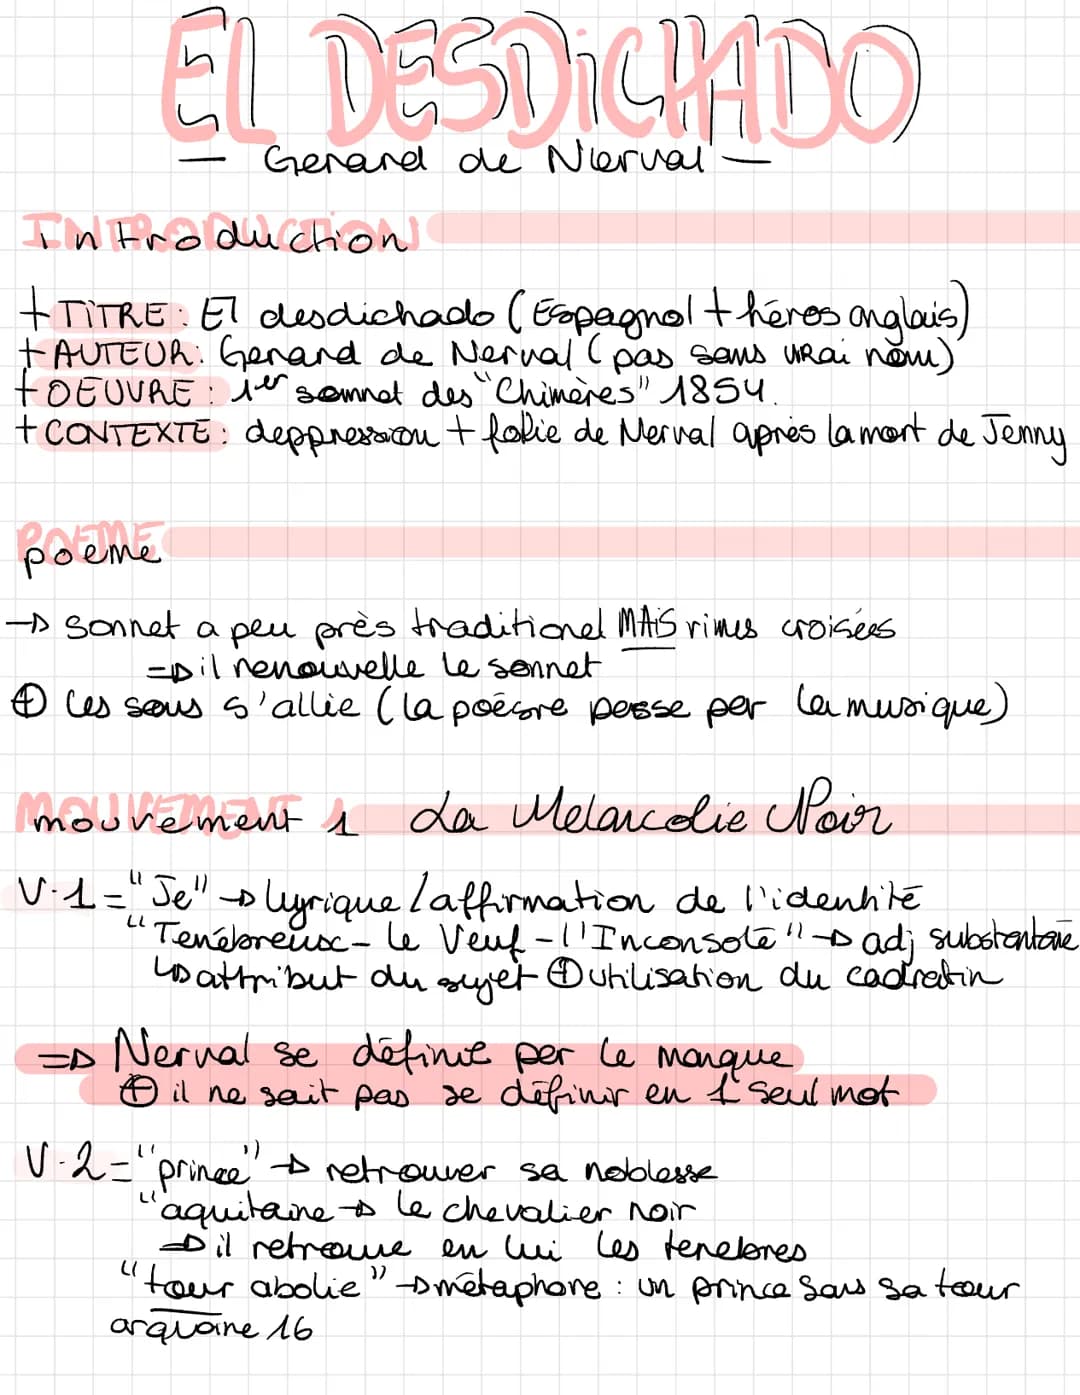 EL DESDiCHADO
— Gerard de Nerval —
Introduction
+ TiTRE : El desdichado (Espagnol + héros anglais)
+ AUTEUR : Gerard de Nerval (pas sans vrai nom)
+ OEUVRE : 1er sonnet des "Chimères" 1854.
+ CONTEXTE : deppression + folie de Nerval après la mort de Jenny
poeme
→ sonnet a peu près traditionel MAiS rimes croisées
⇒ il renouvelle le sonnet
⊕ les sons s'allie (la poésie passe par la musique)
mouvement 1 La Melancolie Noir
V.1 = "Je" → lyrique / affirmation de l'identité
"Tenébreux - le Veuf - l'Inconsolé" → adj substantavé
↳ attribut du sujet ⊕ utilisation du cadratin
⇒ Nerval se définit par le manque
⊕ il ne sait pas se définir en 1 seul mot
V.2 = "prince" → retrouver sa noblesse
"aquitaine → le chevalier noir
⇒ il retrouve en lui les tenebres
"tour abolie" → métaphore : un prince sans sa tour
arquaine 16